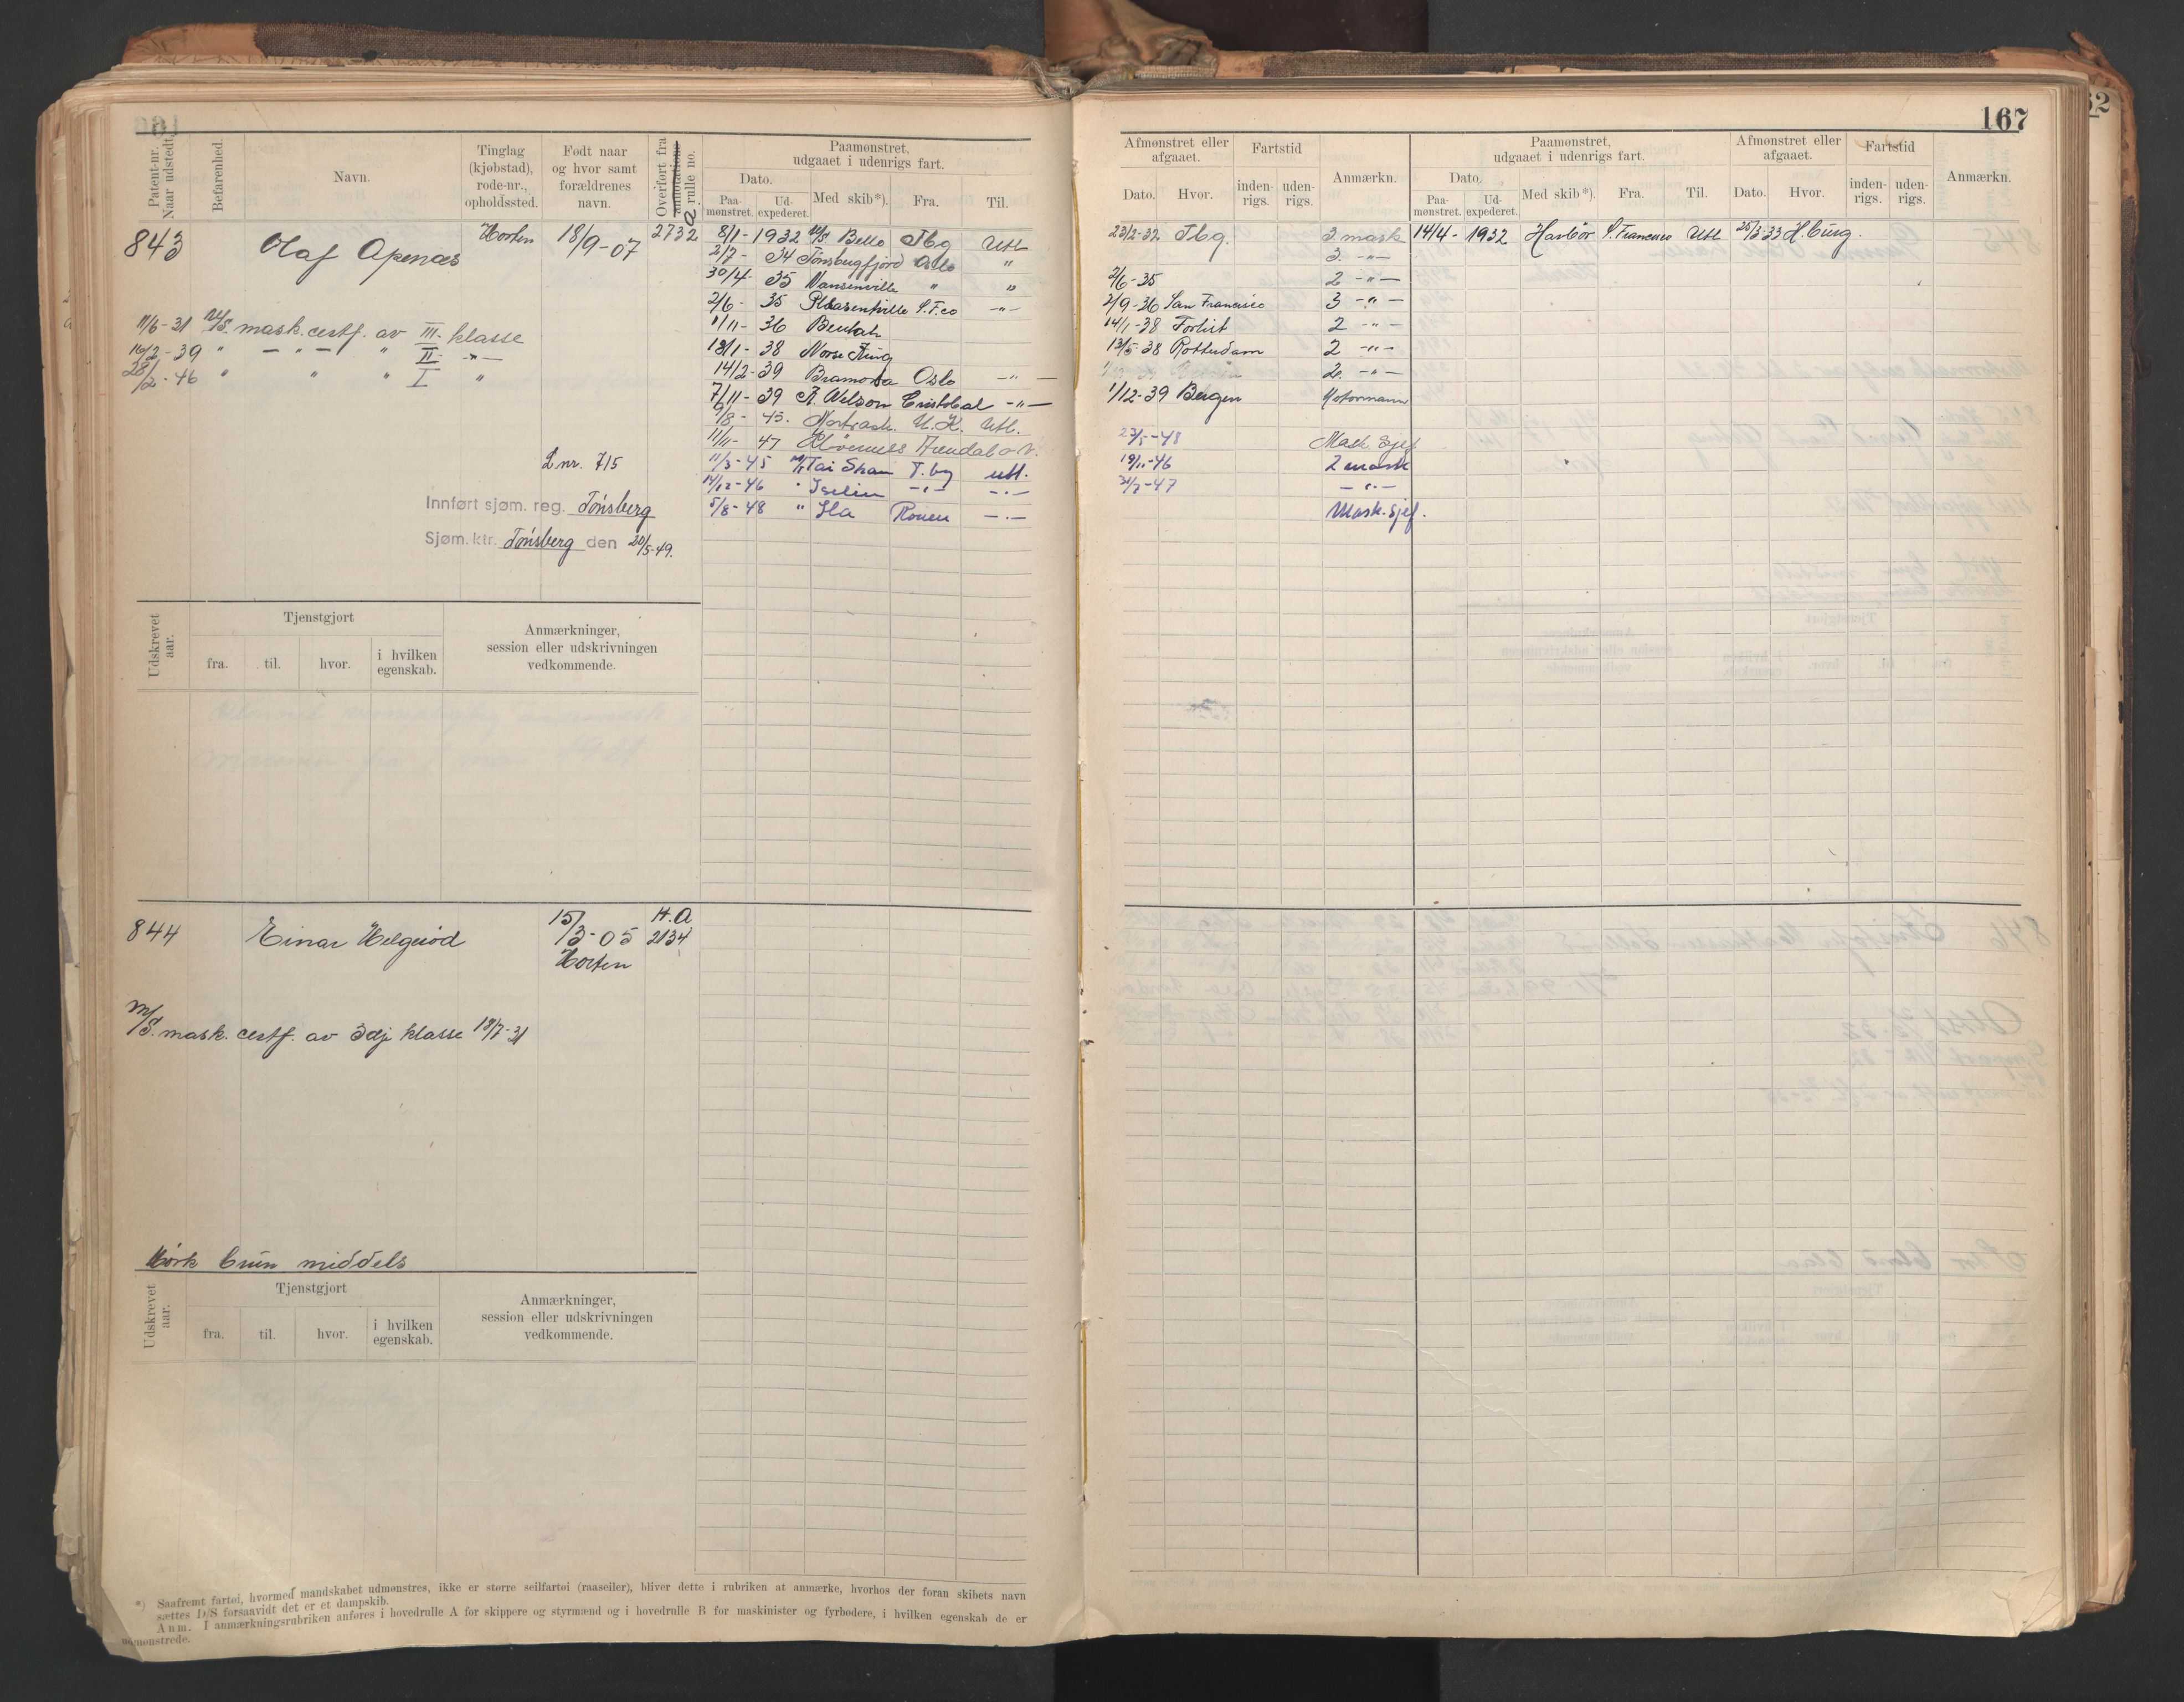 167
Patent-nr. Naar udstedt.
Befarenhed.
Navn.
Tinglag (kjøbstad), rode-nr., opholdssted.
Født naar og hvor samt forældrenes navn.
Overført fra annotations rulle no.
a
Paamønstret, udgaaet i udenrigs fart.
Dato.
Paa-mønstret.
Ud-expederet.
Med skib*).
Fra.
Til.
Afmønstret eller afgaaet.
Dato.
Hvor.
Fartstid
inden-rigs.
uden-rigs.
Anmærkn.
Paamønstret, udgaaet i udenrigs fart.
Dato.
Paa-mønstret.
Ud-expederet.
Med skib*).
Fra.
Til.
Afmønstret eller afgaaet.
Dato.
Hvor.
Fartstid
inden-rigs.
uden-rigs.
Anmærkn.
843 Olaf Apenæs Horten 18/9-07 2732
8/1- 1932 M/S Bello Tbg Utl 23/2-32 Tbg. 3. mask 14/4- 1932 Harbör S. Francisco Utl 25/3-33 H.burg.
2/7- 34 Tönsbergfjord Oslo " 3. -"-
30/4- 35 Nansenville " " 2/6-35 2 -"-
2/6- 35 Pleasentville S.F.co -"- 2/9-36 San Francisco 3 -"-
1/11- 36 Beulah 14/1-38 2 -"-
13/1- 38 Norse King 13/5-38 Rotterdam 2 -"-
14/2- 39 Bramora Oslo -"- 2. -"-
7/11- 39 A. Nelson Cristobal -"- 1/12-39 Bergen Motormann
9/8- 43. U.K. Utl.
11/11- 47 Arendal 27/5-48 Mask. Sjef
11/3-45 M/T Tai Shan T.bg utl. 19/11-46 2 mask
14/12-46 " Iselin -"- -"- -"-
5/8-48 " Ila Rouen -"- Mask.sjef.
11/6-31 M/S. mask. certf. av III. klasse
16/2-39 " -"- " II. -"-
28/2-46 " " " I "
L nr. 715
Innført sjøm. reg. Tönsberg
Sjøm. ktr. Tönsberg den 20/5-49.
Udskrevet aar.
Tjenstgjort
fra.
til.
hvor.
i hvilken egenskab.
Anmærkninger, session eller udskrivningen vedkommende.
844 Einar Helgeröd 15/3-05 Horten H.A 2134
M/S. mask. certf. av 3dje klasse 18/7-31
Mörk brun middels
Udskrevet aar.
Tjenstgjort
fra.
til.
hvor.
i hvilken egenskab.
Anmærkninger, session eller udskrivningen vedkommende.
*) Saafremt fartøi, hvormed mandskabet udmønstres, ikke er større seilfartøi (raaseiler), bliver dette i rubriken at anmærke, hvorhos der foran skibets navn
sættes D/S forsaavidt det er et dampskib.
Anm. I anmærkningsrubriken anføres i hovedrulle A for skippere og styrmænd og i hovedrulle B for maskinister og fyrbødere, i hvilken egenskab de er
udmønstrede.